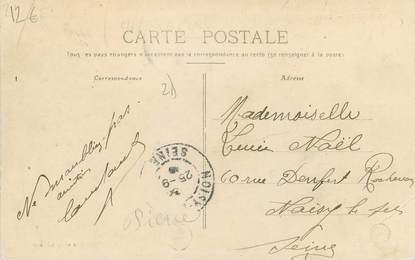 12€
CARTE POSTALE
Tous les pays étrangers n'acceptent pas la correspondance au recto (se renseigner à la poste)
Correspondance
Adresse
21
Ne m'oubliez pas
amitiés
Mademoiselle
Noël
60 rue Denfert Rochereau
Noisy le Sec
Seine
NOISY
SEINE
25